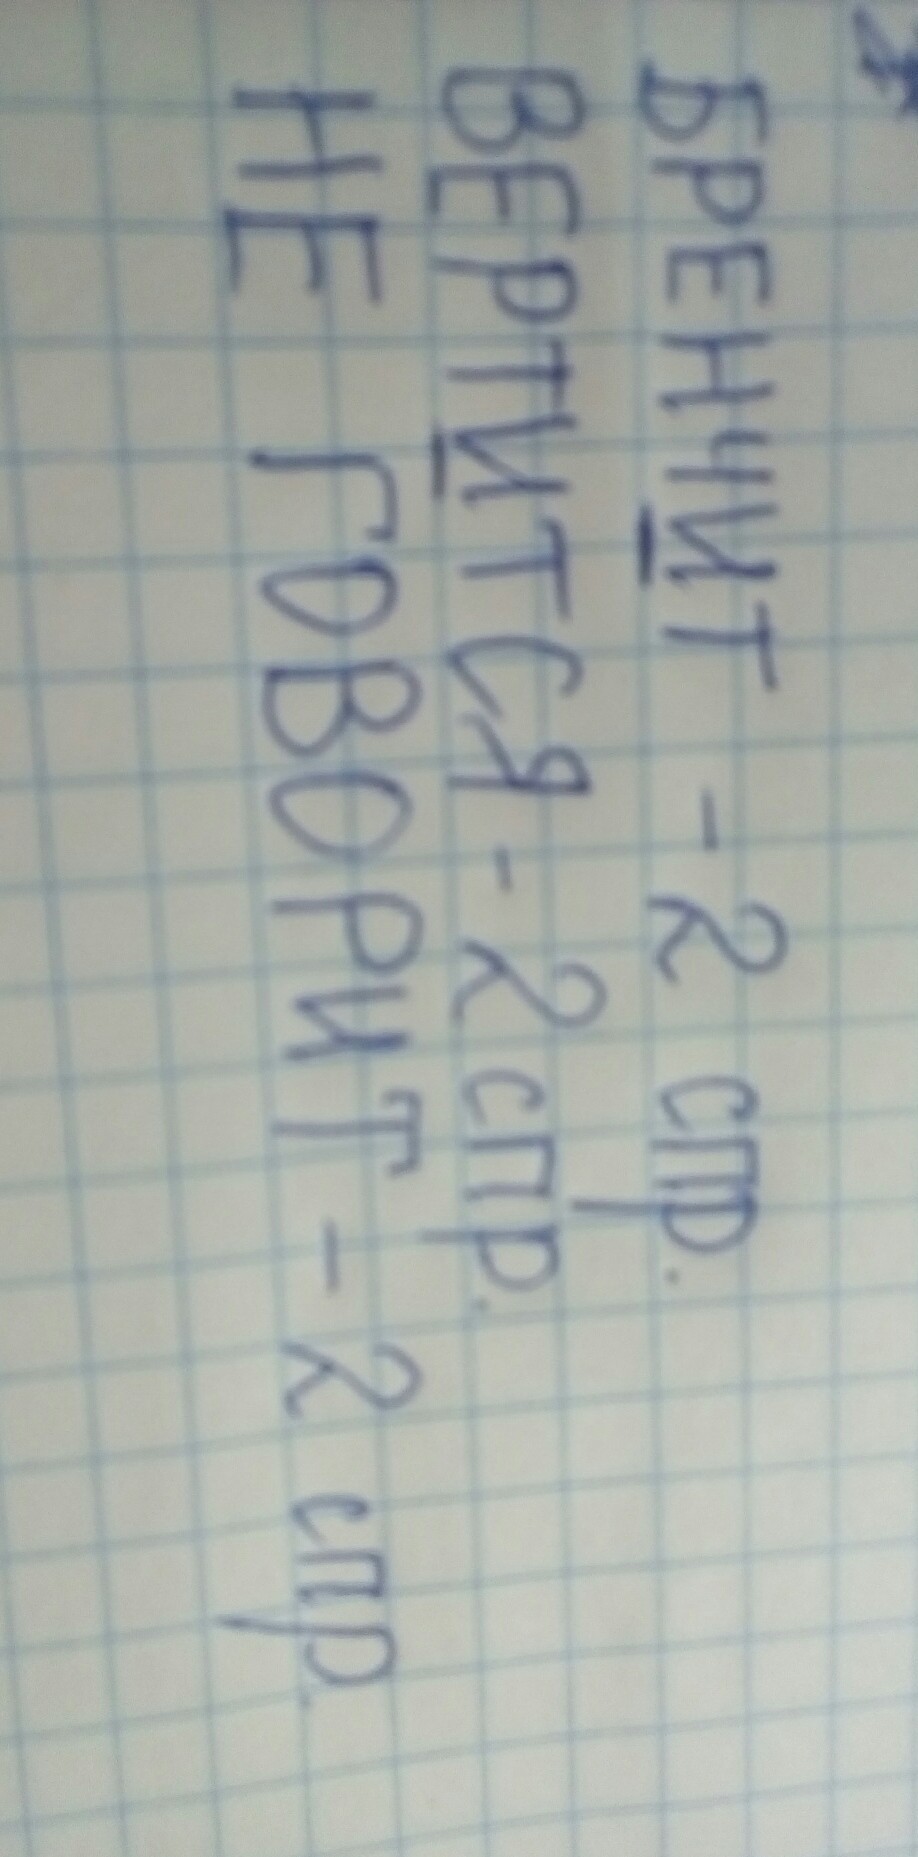 БРЕНЧИТ - 2 спр.
ВЕРТИТСЯ - 2 спр.
НЕ ГОВОРИТ - 2 спр.